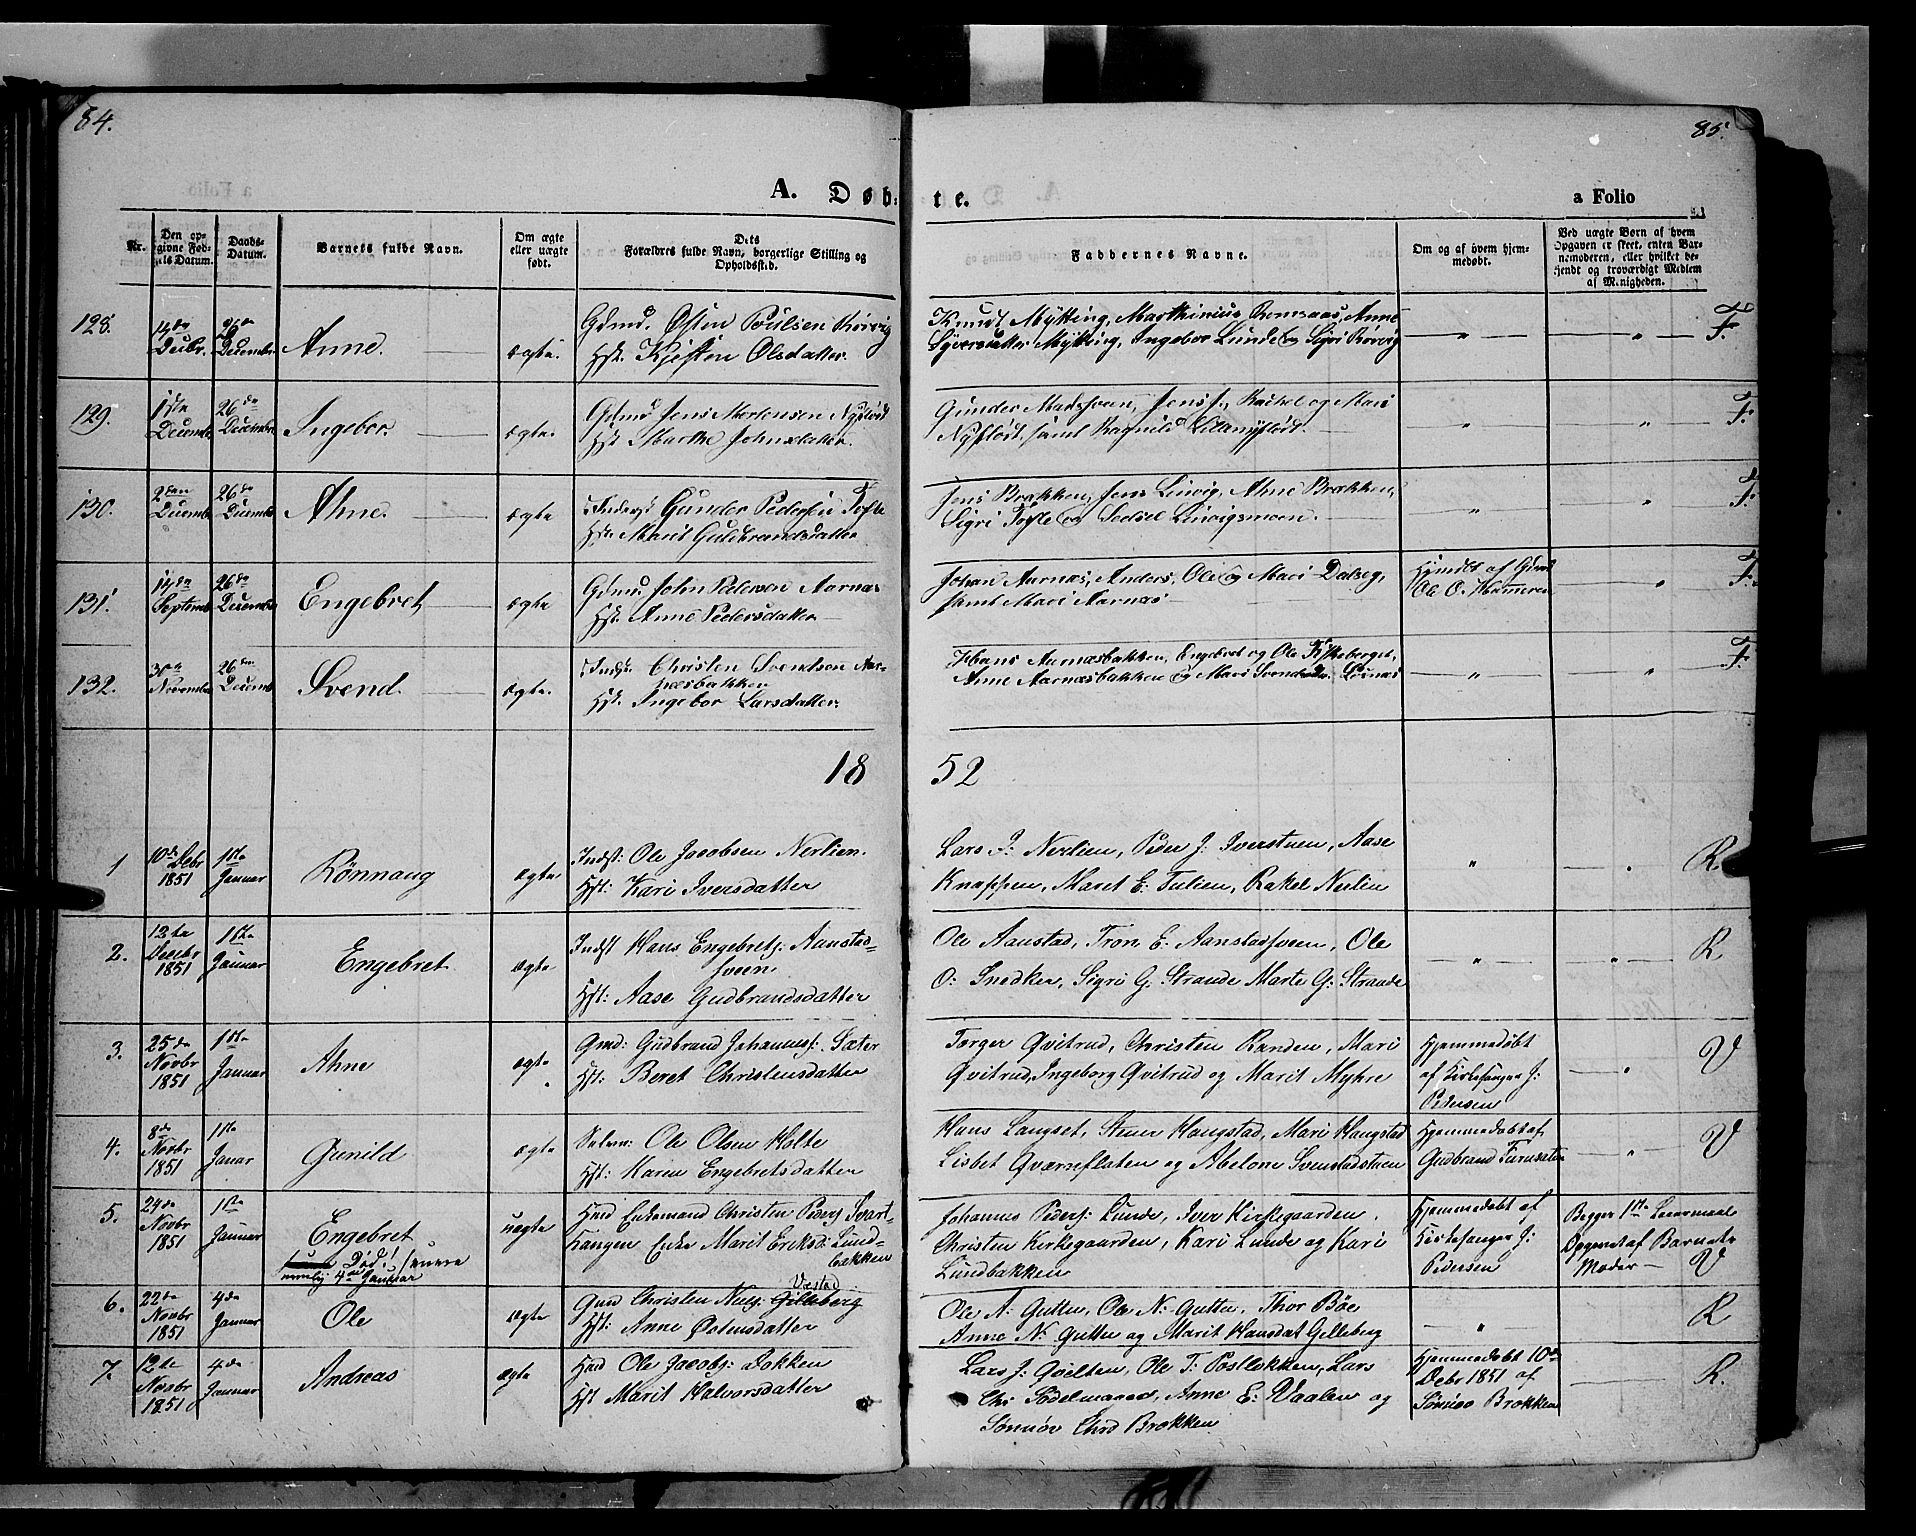 84.
85.
A. Døb-
te.
a Folio
Nr.
Den op-
givne Fød-
sels Datum.
Daabs-
Datum.
Barnets fulde Navn.
Om ægte
eller uægte
født.
Dets
Forældres fulde Navn, borgerlige Stilling og
Opholdssted.
Faddernes Navne.
Om og af hvem hjem-
medøbt.
Ved uægte Børn af hvem
Opgaven er skeet, enten Bar-
nemoderen, eller hvilket be-
kjendt og troværdigt Medlem
af Menigheden.
128.
14de
Decbr.
26de
Decembr.
Anne.
ægte.
Gdmd. Østen Poulsen Rørvig
Hst. Kjersten Olsdatter.
Knud Mytting, Marthinius Romsaas, Anne
Syversdatter Mytting, Ingebor Lunde og Sigri Rørvig
F.
129.
1ste
Decemb.
26de
Decembr
Ingebor.
ægte.
Gdmd. Jens Mortensen Nyflødt
Hst. Marthe Johnsdatter.
Gunder Madssveen, Jens J., Rachel og Mari
Nyflødt, samt Ragnild Lillenyflødt.
F.
130.
2den
Decemb
26de
Decemb
Ahne.
ægte
Inders. Gunder Pedersen Tofte
Hst. Marit Guldbrandsdatter
Jens Brækken, Jens Linvig, Ahne Brækken,
Sigri Tofte og Sedsel Linvigsmoen.
F.
131.
14de
Septemb
26de
Decemb
Engebret
ægte
Gdmd. John Pedersen Aarnæs
Hst. Anne Pedersdatter
Johan Aarnæs, Anders, Ole og Mari Dalseg,
samt Mari Aarnæs
Hjemdt af Gdmd
Ole O. Hammeren
F.
132.
30te
November
26de
Decemb
Svend.
ægte.
Indst. Christen Svendsen Aar-
næsbakken
Hst. Ingebor Larsdatter.
Hans Aarnæsbakken, Engebret og Ole Kykkeberget,
Anne Aarnæsbakken og Mari Svendsdtr. Losnæs
F
1852
1
10de Debr
1851
1ste
Januar
Rönnaug
ægte
Indst: Ole Jacobsen Nerlien.
Hst: Kari Iversdatter
Lars J: Nerlien, Peder J: Iverstuen, Aase
Knappen, Marit E: Tulien, Rakel Nerlien
R.
2.
13te
Decbr
1851
1ste
Januar
Engebret
ægte
Indst Hans Engebrets: Aanstad-
sveen.
Hst: Aase Gudbrandsdatter
Ole Aanstad, Tron E: Aanstadsveen, Ole
O: Snedker, Sigri G. Strande Marte G: Strande
R
3.
25de
Novbr
1851
1ste
Januar
Ahne
ægte
Gmd: Gudbrand Johannes: Sæter
Hst: Beret Christensdatter
Torger Qvitrud, Christen Randen, Mari
Qvitrud, Ingeborg Qvitrud og Marit Myhre
Hjemmedøbt
af Kirkesanger J:
Pedersen
V
4.
8de
Novbr
1851
1ste
Janar
Gunild
ægte
Selve: Ole Olsen Holte
Hst: Karen Engebretsdatter
Hans Langset, Stener Haugstad, Mari Haugstad
Lisbet Qværneflaten og Abelone Svenstadstuen
Hjemmedøbt af
Gudbrand Furusæter
V
5.
24de
Novbr
1851
1ste
Januar
Engebret
Död!
nemlig 4de Januar
uægte
Huusd Enkemand Christen Peders Svart-
hangen Enke Marit Eriksd: Lund-
bækken
Johannes Peders: Lunde, Iver Kirkegaarden.
Christen Kirkegaarden, Kari Lunde og Kari
Lundbakken
Hjemmedøbt af
Kirkesanger J:
Pedersen
Begges 1ste Leiermaal
Opgivet af Barnets
Moder
V
6.
22de
Novbr
1851
4de
Januar
Ole
ægte
Gmd Christen Niels: Gilleberg
Vestad
Hst: Anne Østensdatter
Ole A: Gutten, Ole N: Gutten, Thor Böe
Anne N: Gutten og Marit Hansdat Gilleberg
R
7.
12te
Novbr
1851
4de
Januar
Andreas
ægte
Huusd Ole Jacobs: Dokken
Hst Marit Halvorsdatter
Lars J: Qvelten, Ole T: Postløkken, Lars
Chr Södelmaged, Anne E: Vaalen og
Sönnöv Chrd Brækken.
Hjemmedøbt 10de
Debr 1851 af
Sönnöv Brækken
R.